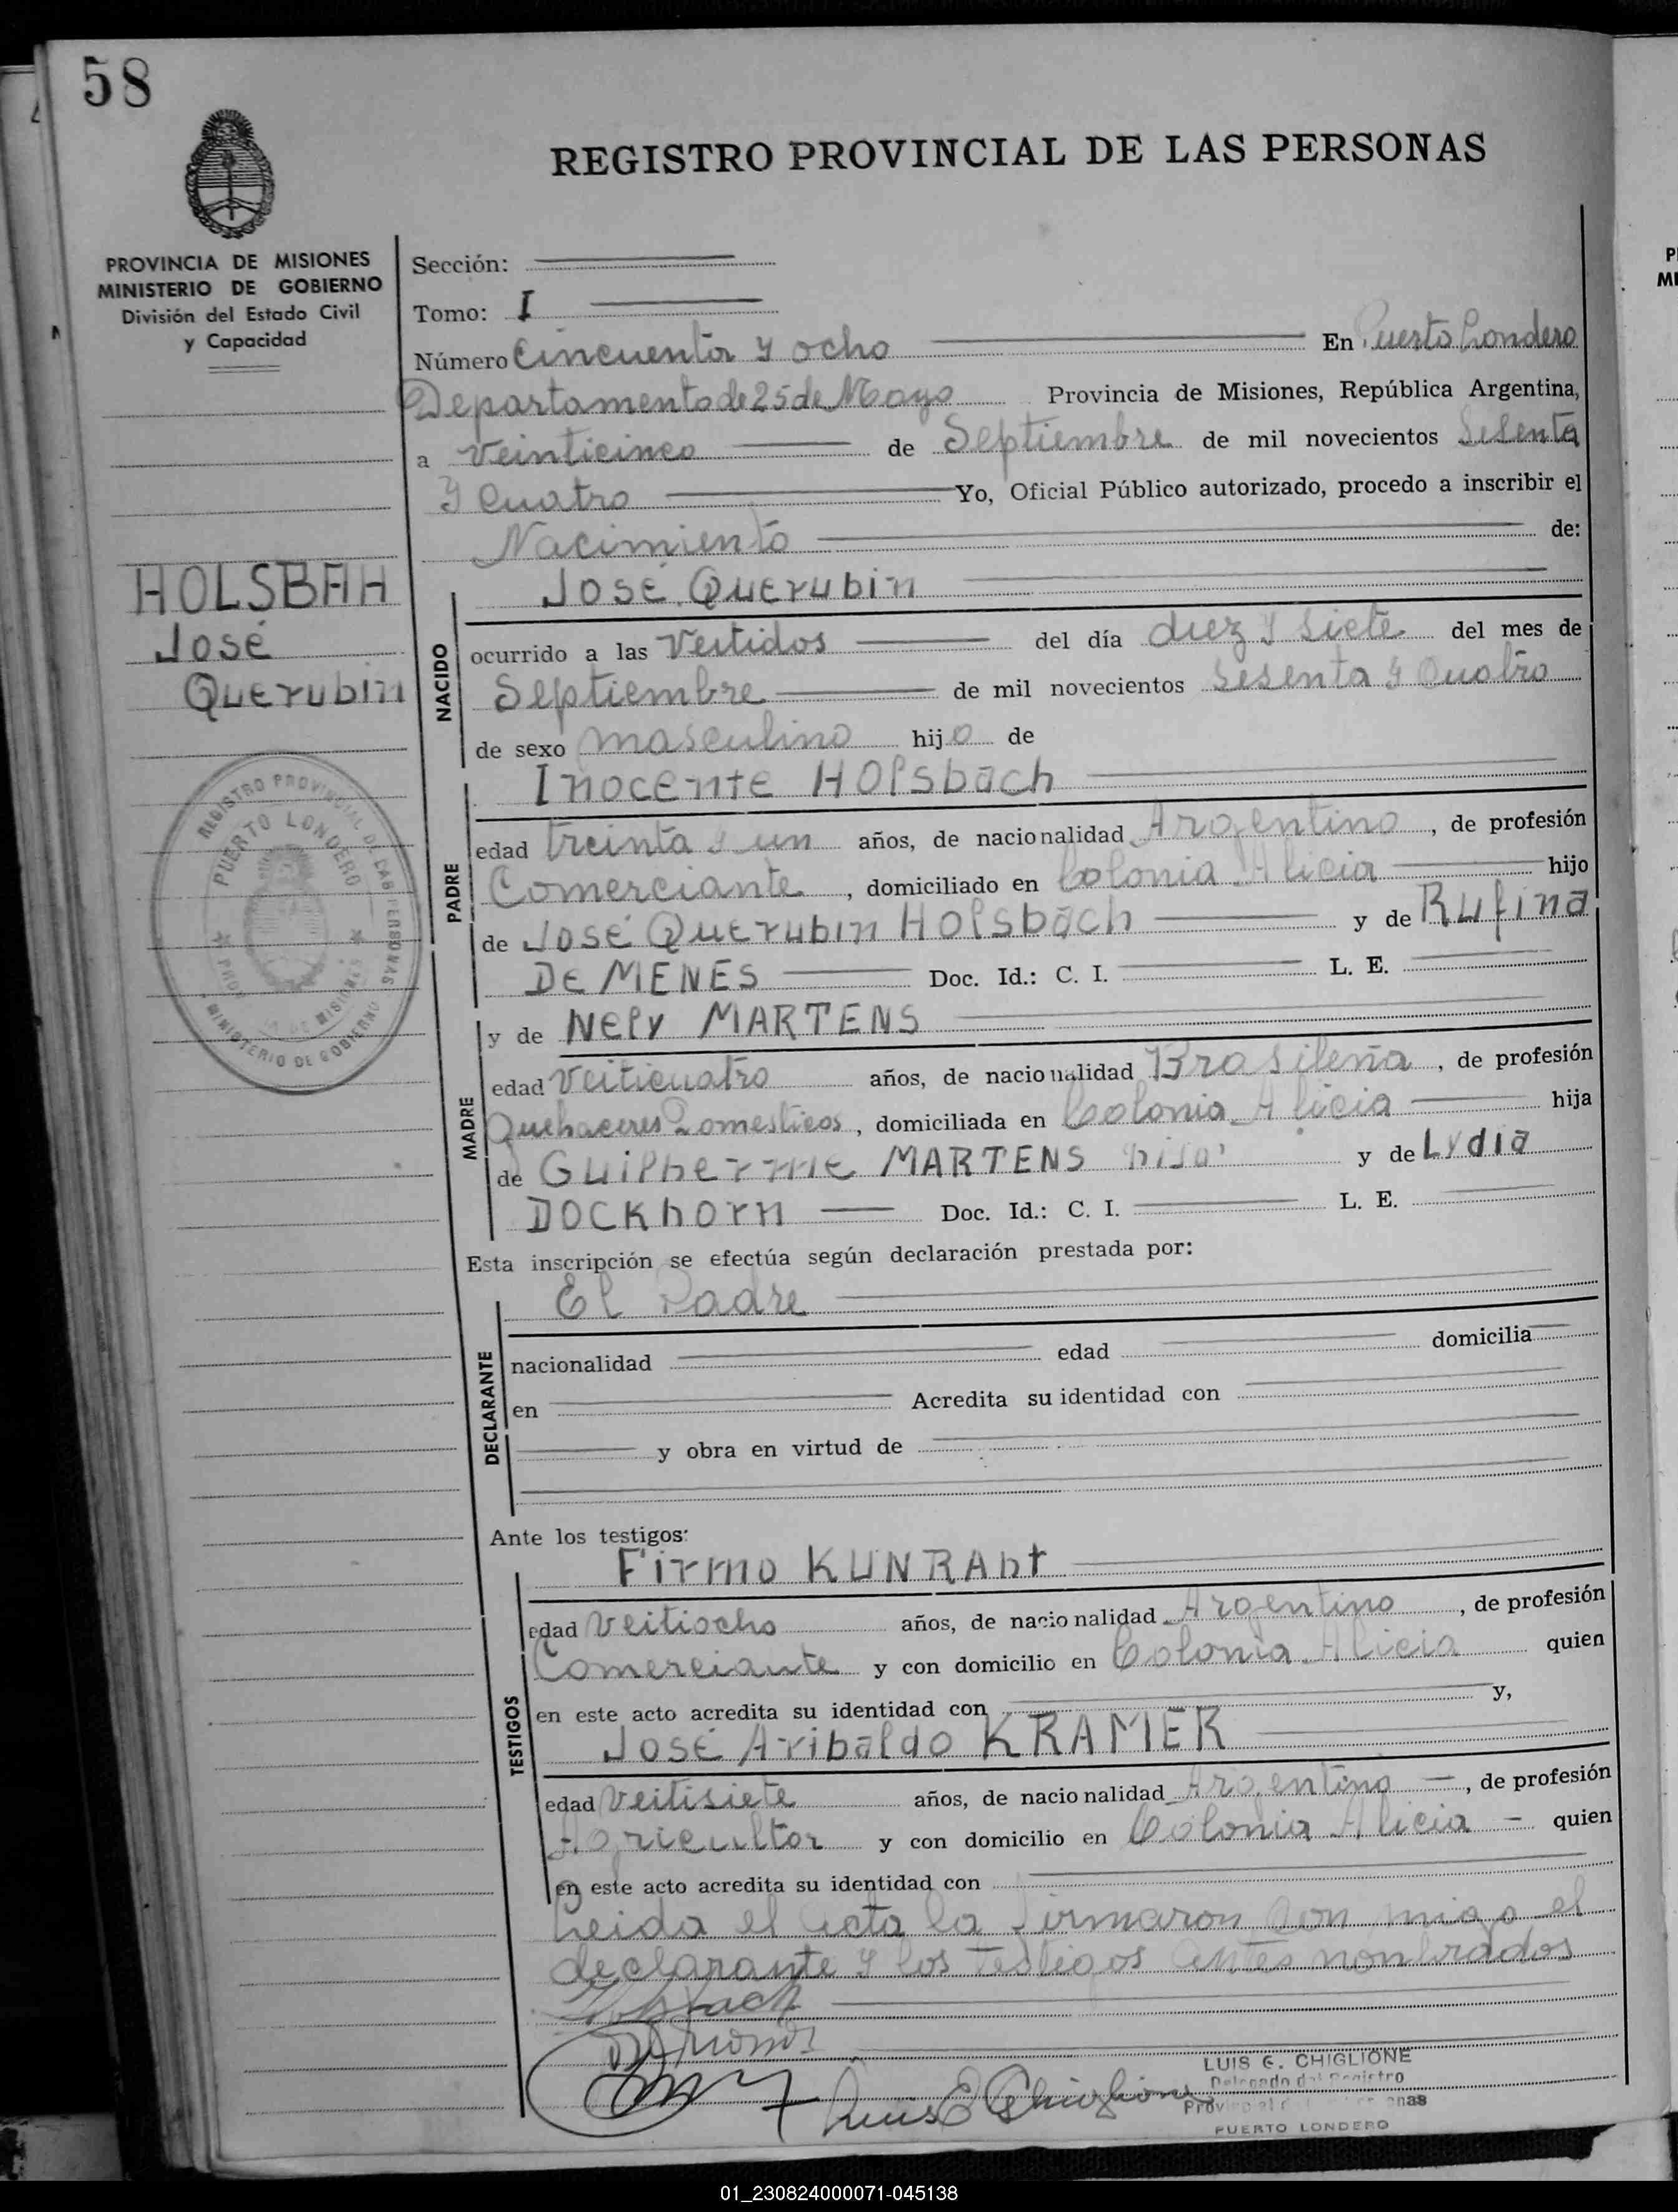 58
REGISTRO PROVINCIAL DE LAS PERSONAS
PROVINCIA DE MISIONES
MINISTERIO DE GOBIERNO
División del Estado Civil
y Capacidad
Sección:
Tomo: I
Número Cincuenta y ocho En Puerto Londero
Departamento de 25 de Mayo Provincia de Misiones, República Argentina,
a Veinticinco de Septiembre de mil novecientos Sesenta
y Cuatro Yo, Oficial Público autorizado, procedo a inscribir el
Nacimiento de:
HOLSBAH
José
Querubin
José Querubin
NACIDO
ocurrido a las Veitidos del día diez y siete del mes de
Septiembre de mil novecientos Sesenta y Cuatro
de sexo masculino hijo de
Inocente HOlsbach
PADRE
edad treinta y un años, de nacionalidad Argentino, de profesión
Comerciante, domiciliado en Colonia Alicia hijo
de José Querubin HOlsbach y de Rufina
DE MENES Doc. Id.: C. I. L. E.
MADRE
y de Nely MARTENS
edad Veiticuatro años, de nacionalidad Brasileña, de profesión
Quehaceres Domesticos, domiciliada en Colonia Alicia hija
de Guilherme MARTENS hijo y de Lydia
DOCKhorn Doc. Id.: C. I. L. E.
REGISTRO PROVINCIAL DE LAS PERSONAS
PUERTO LONDERO
MISIONES
MINISTERIO DE GOBIERNO
Esta inscripción se efectúa según declaración prestada por:
El Padre
DECLARANTE
nacionalidad edad domicilia
en Acredita su identidad con
y obra en virtud de
Ante los testigos:
Firmo KUNRAht
TESTIGOS
edad Veitiocho años, de nacionalidad Argentino, de profesión
Comerciante y con domicilio en Colonia Alicia quien
en este acto acredita su identidad con y,
José Aribaldo KRAMER
edad Veitisiete años, de nacionalidad Argentino, de profesión
Agricultor y con domicilio en Colonia Alicia quien
en este acto acredita su identidad con
Leida el acta la firmaron con migo el
declarante y los testigos antes nombrados
Luis E Chiglione
LUIS E. CHIGLIONE
Delegado del Registro
PUERTO LONDERO
P
MI
01_230824000071-045138